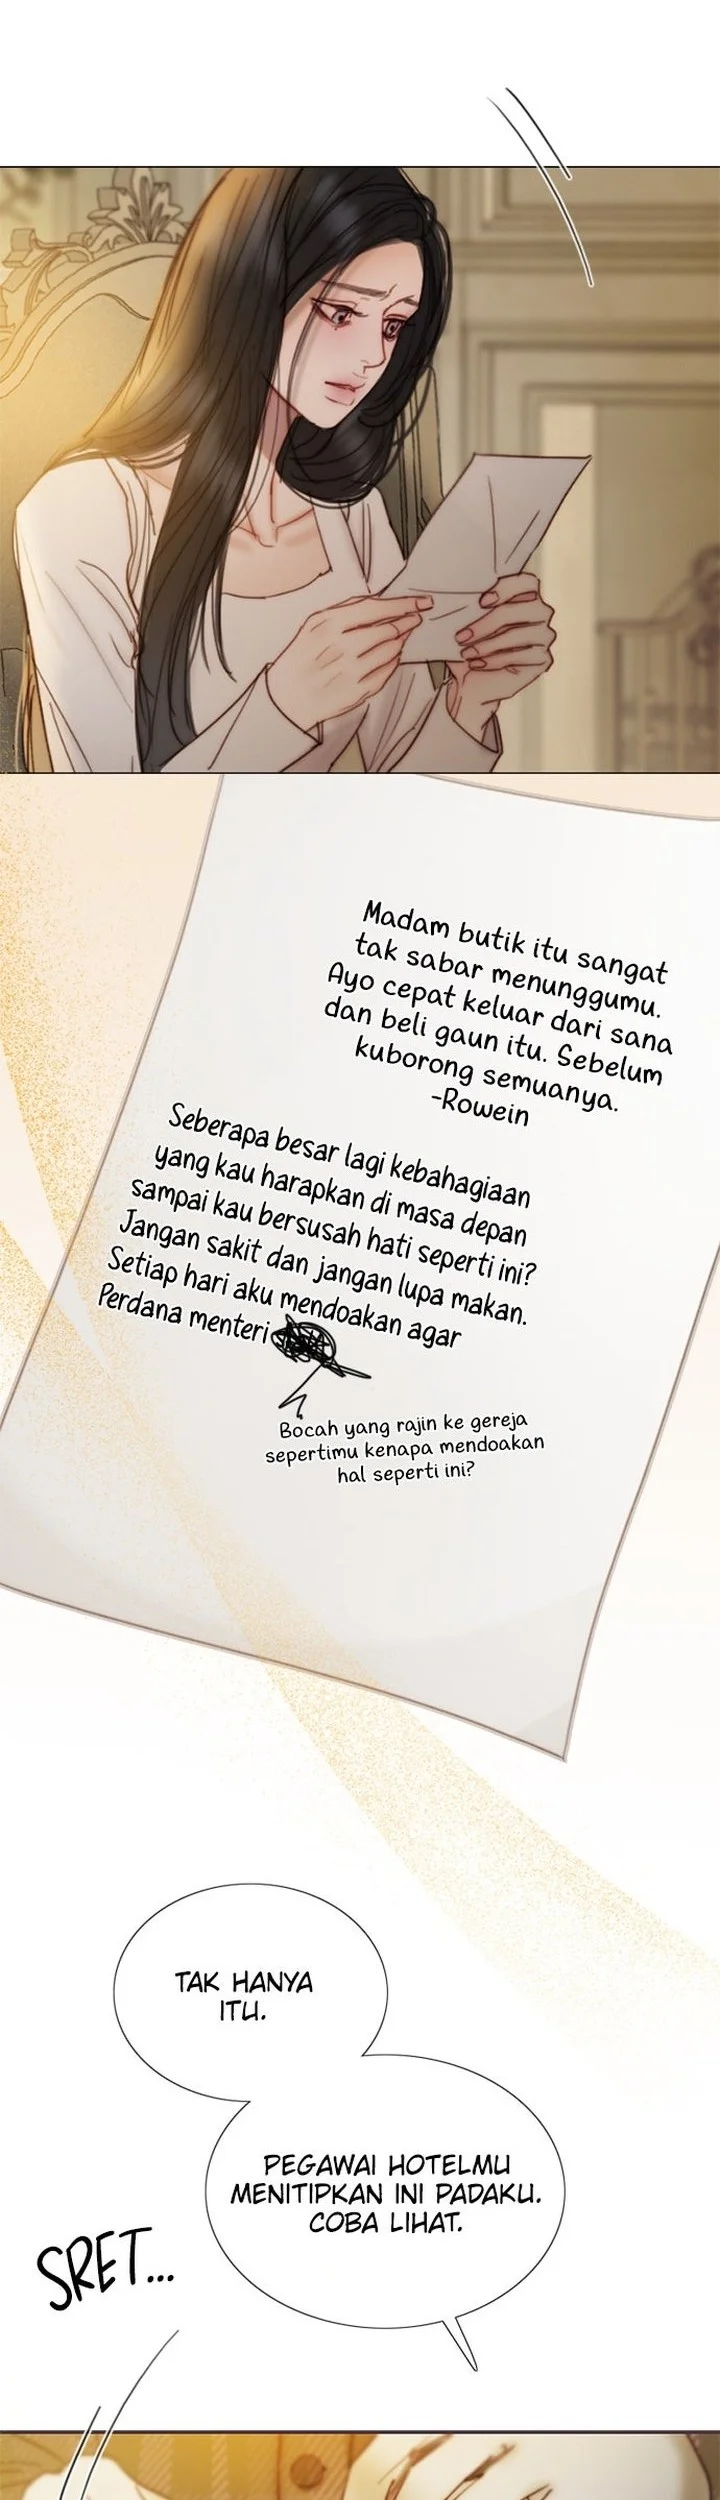 Madam butik itu sangat
tak sabar menunggumu.
Ayo cepat keluar dari sana
dan beli gaun itu. Sebelum
kuborong semuanya.
-Rowein
Seberapa besar lagi kebahagiaan
yang kau harapkan di masa depan
sampai kau bersusah hati seperti ini?
Jangan sakit dan jangan lupa makan.
Setiap hari aku mendoakan agar
Perdana menteri
Bocah yang rajin ke gereja
sepertimu kenapa mendoakan
hal seperti ini?
TAK HANYA
ITU.
PEGAWAI HOTELMU
MENITIPKAN INI PADAKU.
COBA LIHAT.
SRET...